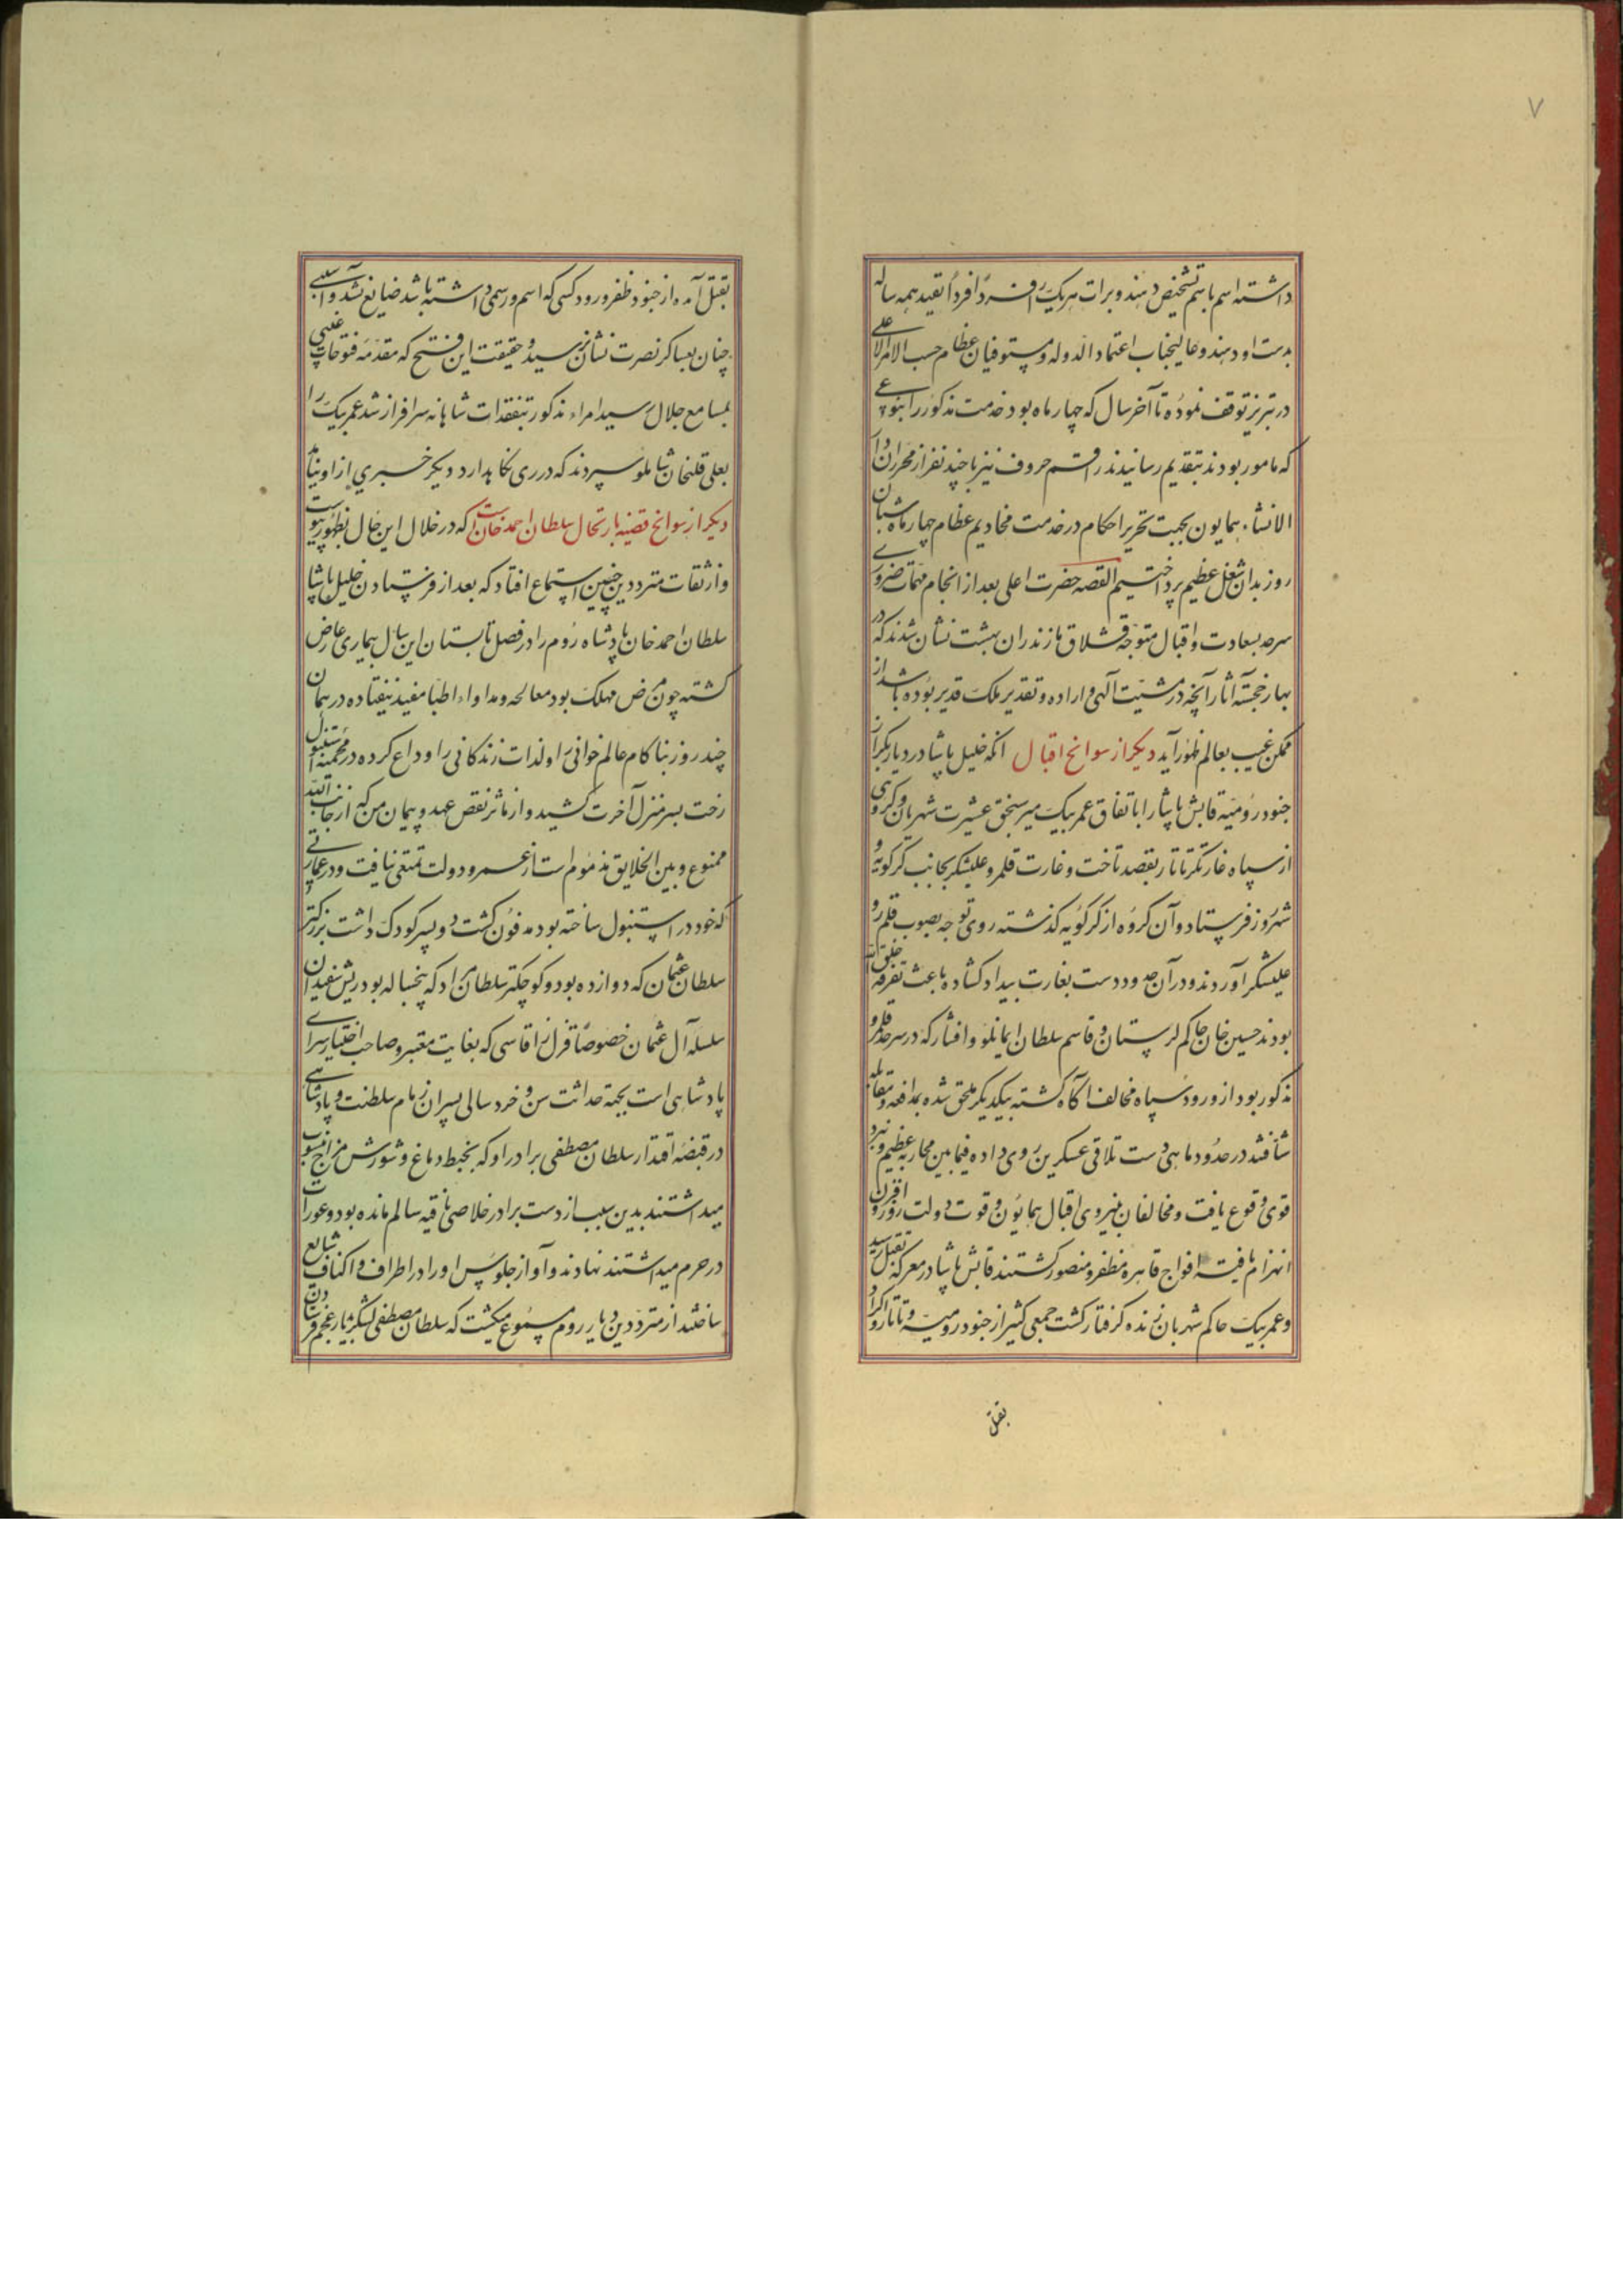 ۷
داشته اسم باسم تشخیص دهند و برات هریک را فرداً فرداً بقید همه ساله
بدست او دهند و عالیجناب اعتماد الدوله و مستوفیان عظام حسب الامر الاعلی
در تبریز توقف نموده تا آخر سال که چهار ماه بود خدمت مذکور را بنوعی
که مامور بودند بتقدیم رسانیدند راقم حروف نیز با چند نفر از محرران دار
الانشاء همایون بجهت تحریر احکام در خدمت مخادیم عظام چهار ماه شبان
روز بدان شغل عظیم پرداختیم القصه حضرت اعلی بعد از انجام مهمات ضروری
سرحد بسعادت و اقبال متوجه قشلاق مازندران بهشت نشان شدند که در
بهار خجسته آثار آنچه در مشیت آلهی و اراده و تقدیر ملک قدیر بوده باشد از
ممکن غیب بعالم ظهور آید دیکر از سوانح اقبال انکه خلیل پاشا در دیار بکر از
جنود رومیه قابش پاشا را باتفاق عمر بیک میر سنجق عشیرت شهربان و کروهی
از سپاه غارتکر تاتار بقصد تاخت و غارت قلمرو علیشکر بجانب کرکویه و
شهروز فرستاد و آن کروه از کرکویه کذشته روی توجه بصوب قلمرو
علیشکر آوردند و در آن حدود دست بغارت بیداد کشاده باعث تفرقه خلق الله
بودند حسین خان حاکم لرستان و قاسم سلطان ایمانلو و افشار که در سرحد قلمرو
مذکور بود از ورود سپاه مخالف آکاه کشته بیکدیکر ملحق شده بمدافعه و مقابله
شتافتند در حدود ماهی دشت تلاقی عسکرین روی داده فیمابین محاربه عظیم و نبرد
قوی وقوع یافت و مخالفان بنیروی اقبال همایون و قوت دولت روز افزون
انهزام یافته افواج قاهره مظفر و منصور کشتند قابش پاشا در معرکه بقتل رسید
و عمر بیک حاکم شهربان زنده کرفتار کشت جمعی کثیر از جنود رومیه و تاتار و اکراد
بقتل
بقتل آمده از جنود ظفر ورود کسی که اسم و رسمی داشته باشد ضایع نشد و آسیبی
چنان بعساکر نصرت نشان نرسید و حقیقت این فتح که مقدمه فتوحات غیبی
بمسامع جلال رسید امراء مذکور بتفقدات شاهانه سرافراز شد عمر بیک را
بعلی قلیخان شاملو سپردند که در ری نکاهدارد دیکر خبری از او نیامد
دیکر از سوانح قضیه ارتحال سلطان احمد خان است که در خلال این حال بظهور پیوست
و از ثقات مترددین چنین استماع افتاد که بعد از فرستادن خلیل پاشا
سلطان احمد خان پادشاه روم را در فصل تابستان این سال بیماری عارض
کشته چون مرض مهلک بود معالجه و مداواء اطبا مفید نیفتاده در همان
چند روز بناکام عالم جوانی و لذات زندکانی را وداع کرده در محمیه استنبول
رخت بسر منزل آخرت کشید و از مآثر نقض عهد و پیمان من که از جانب الله
ممنوع و بین الخلایق مذموم است از عمر و دولت تمتعی نیافت و در عمارتی
که خود در استنبول ساخته بود مدفون کشت دو پسر کودک داشت بزرکتر
سلطان عثمان که دوازده بود و کوچکتر سلطان مراد که پنجساله بود ریش سفیدان
سلسله آل عثمان خصوصاً قزلر اقاسی که بغایت معتبر و صاحب اختیار سرای
پادشاهی است بجهة حداثت سن و خرد سالی پسران زمام سلطنت و پادشاهی
در قبضه اقتدار سلطان مصطفی برادر او که بخبط دماغ و شورش مزاج منسوب
میداشتند بدین سبب از دست برادر خلاصی یافته سالم مانده بود و عورات
در حرم میداشتند نهادند و آواز جلوس او را در اطراف و اکناف شایع
ساختند از مترددین دیار روم مسموع میکشت که سلطان مصطفی لشکر بدیار عجم فرستادن